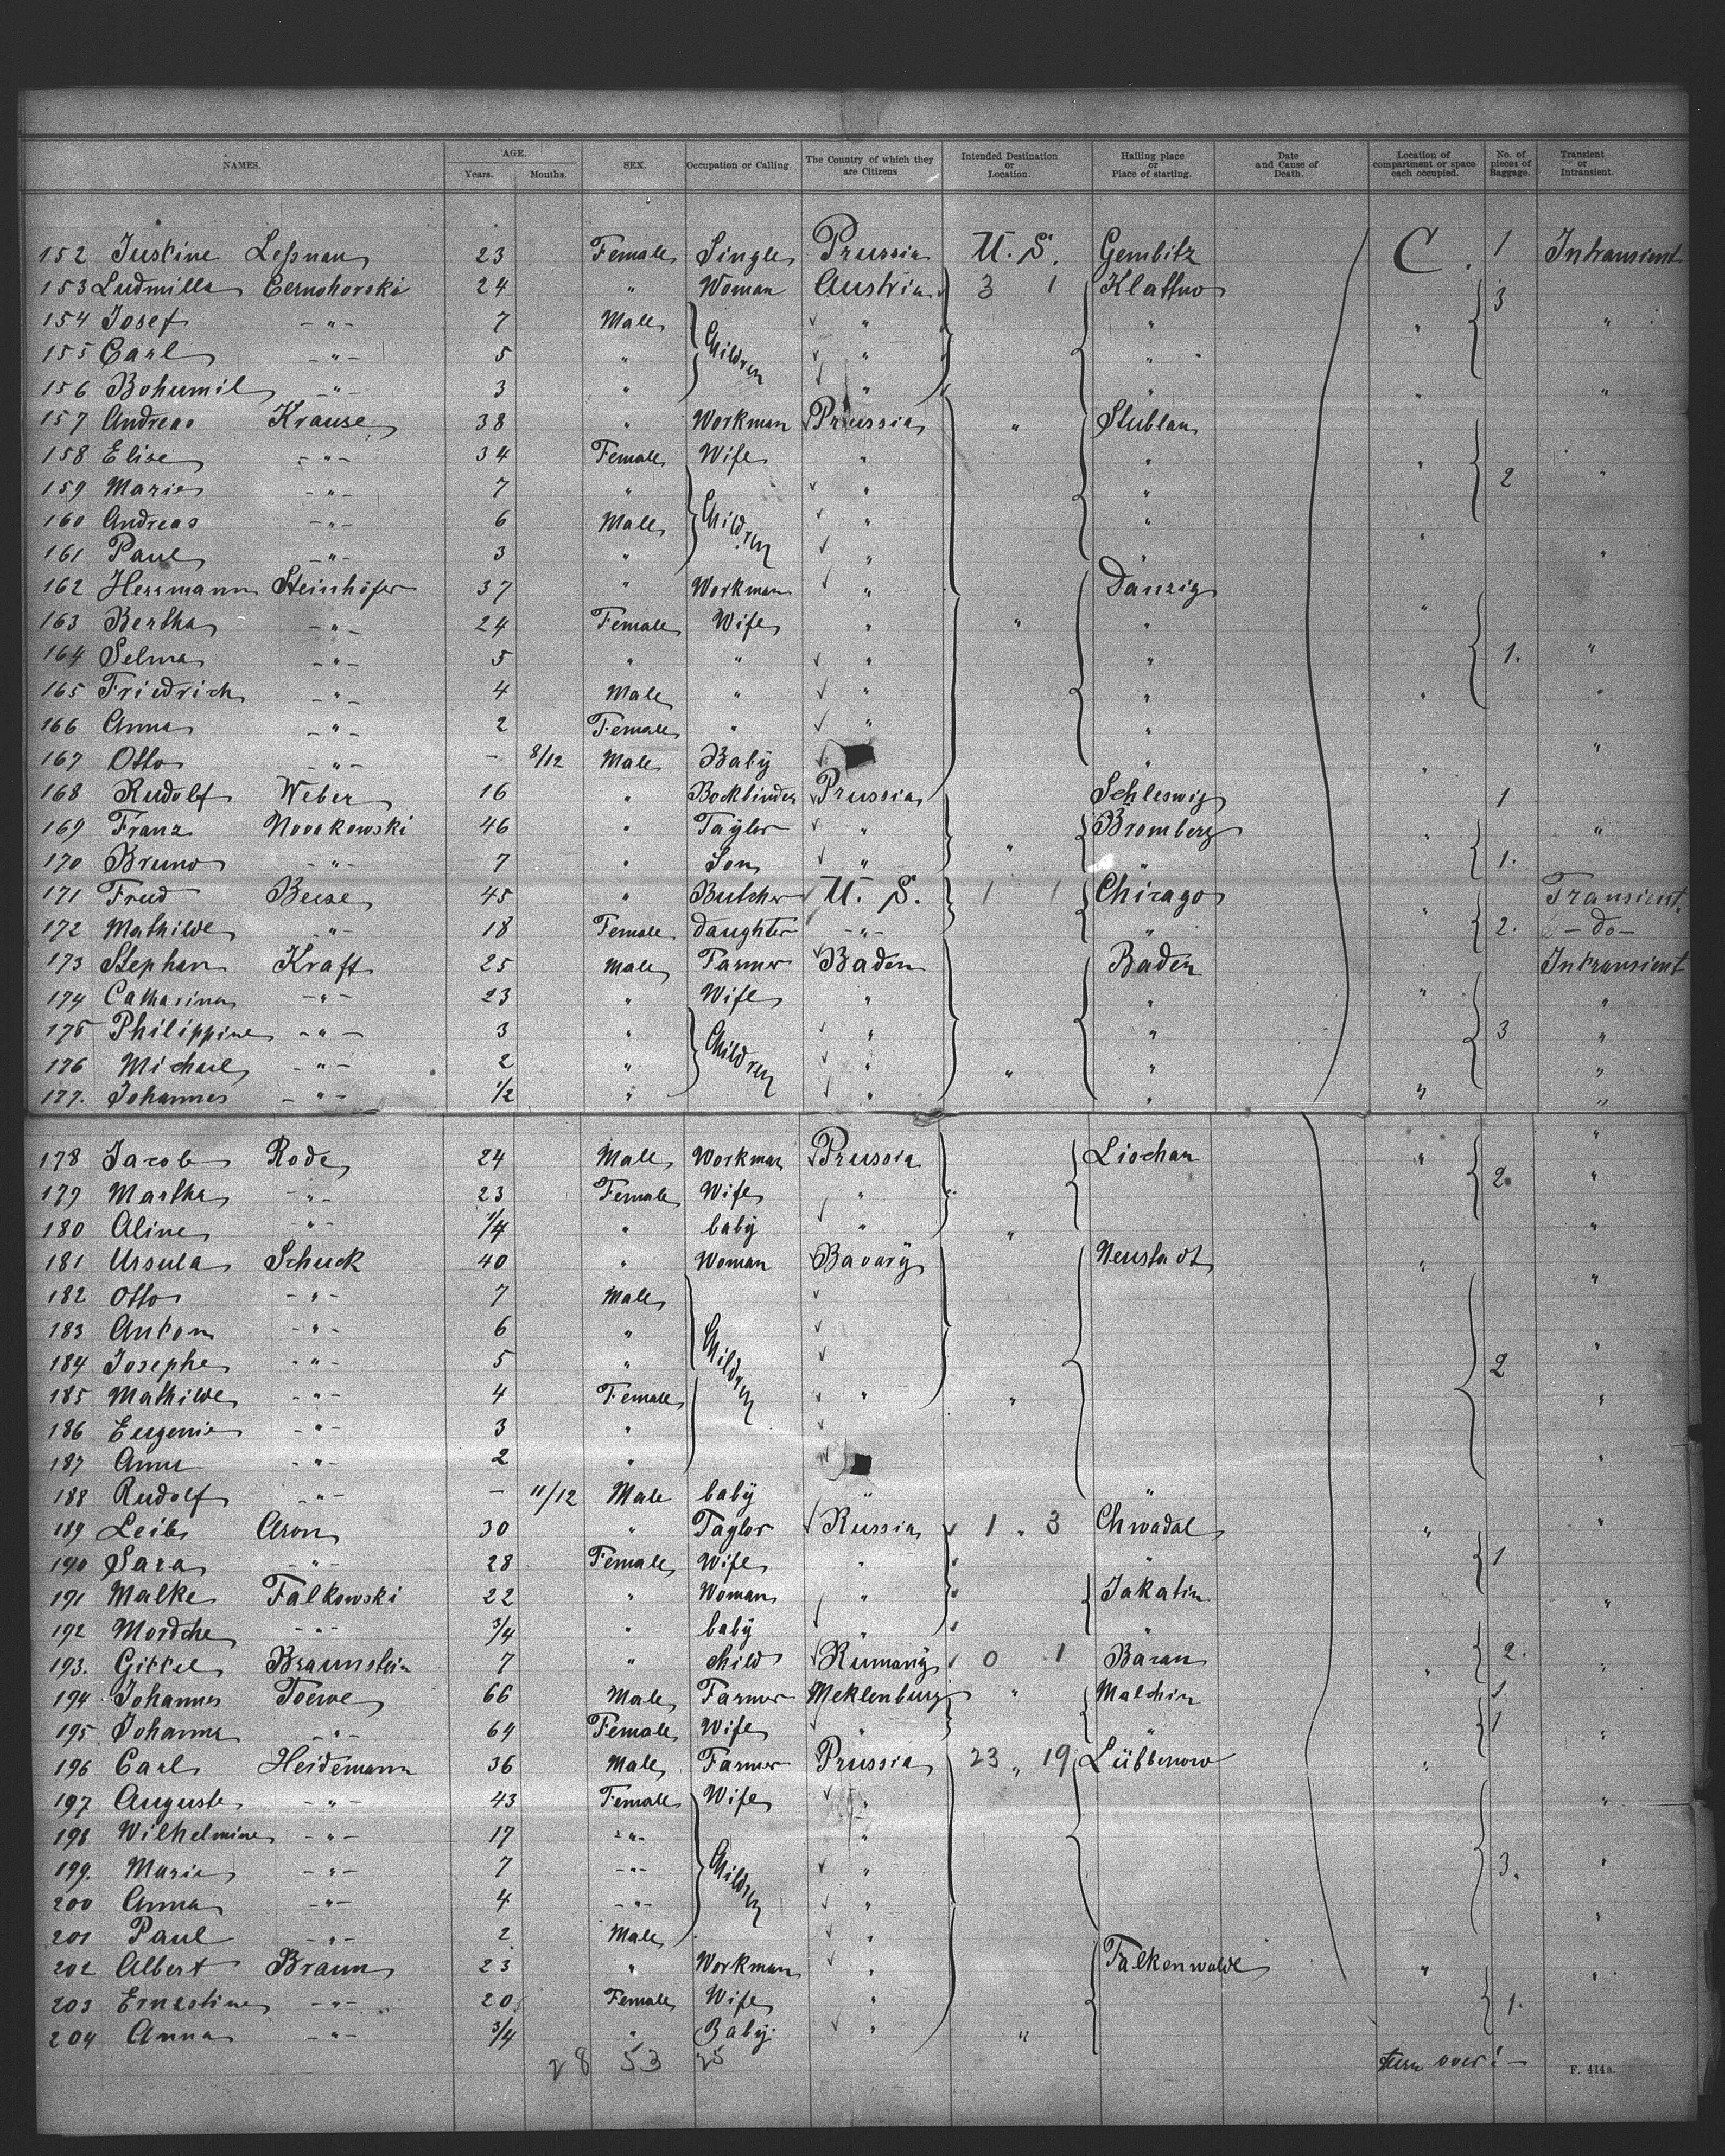 NAMES. AGE. Years. Months. SEX. Occupation or Calling. The Country of which they are Citizens Intended Destination or Location. Hailing place or Place of starting. Date and Cause of Death. Location of compartment or space each occupied. No. of pieces of Baggage. Transient or Intransient.
152 Justine Leßnau 23 Female Single Prussia U. S. Gembitz C. 1 Intransient
153 Ludmilla Cernohorski 24 " Woman Austria 3 1 Klattno 3
154 Josef -"- 7 Male Children " " " "
155 Carl -"- 5 " " "
156 Bohumil -"- 3 " " " " "
157 Andreas Krause 38 " Workman Prussia " Stublau
158 Elise -"- 34 Female Wife " " "
159 Marie -"- 7 " Children " " 2 "
160 Andreas -"- 6 Male " "
161 Paul -"- 3 " " " " "
162 Herrmann Steinhöfer 37 " Workman " Danzig "
163 Bertha -"- 24 Female Wife " " "
164 Selma -"- 5 " " " " 1. "
165 Friedrich -"- 4 Male " " " " "
166 Anna -"- 2 Female " " "
167 Otto -"- - 8/12 Male Baby " " "
168 Rudolf Weber 16 " Bockbinder Prussia Schleswig 1
169 Franz Novakowski 46 " Taylor " " Bromberg " "
170 Bruno -"- 7 " Son " " 1.
171 Fred Beese 45 " Butcher U. S. 1 1 Chicago " Transient
172 Mathilde -"- 18 Female daughter -"- " 2. -do-
173 Stephan Kraft 25 Male Farmer Baden Baden Intransient
174 Catharina -"- 23 " Wife " " " "
175 Philippine -"- 3 " Children " " 3 "
176 Michael -"- 2 " " " " "
177. Johannes -"- 1/2 " " " " "
178 Jacob Rode 24 Male Workman Prussia Liochau " "
179 Martha -"- 23 Female Wife " 2. "
180 Aline -"- 1/4 " baby " " "
181 Ursula Schuck 40 " Woman Bavary Neustadt " "
182 Otto -"- 7 Male
183 Anton -"- 6 " Children
184 Josephe -"- 5 " 2 "
185 Mathilde -"- 4 Female " " "
186 Eugenie -"- 3 "
187 Anna -"- 2 " "
188 Rudolf -"- - 11/12 Male baby " "
189 Leib Aron 30 " Taylor Russia 1 " 3 Chwadal " "
190 Sara -"- 28 Female Wife " " 1
191 Malke Falkowski 22 " Woman " Jakatin "
192 Mordche -"- 3/4 " baby " "
193. Gittel Braunstein 7 " child Rumany 0 1 Baran " 2. "
194 Johannes Toewe 66 Male Farmer Meklenburg " Malchin 1
195 Johanna -"- 64 Female Wife " " 1 "
196 Carl Heidemann 36 Male Farmer Prussia 23 " 19 Lübbenow "
197 Auguste -"- 43 Female Wife " "
198 Wilhelmine -"- 17 -"- Children "
199. Marie -"- 7 -"- " 3. "
200 Anna -"- 4 -"- "
201 Paul -"- 2 Male " "
202 Albert Braun 23 " Workman " Falkenwalde " "
203 Ernestine -"- 20 Female Wife " 1.
204 Anna -"- 3/4 " Baby " "
28 53 25 turn over! -
F. 414a.